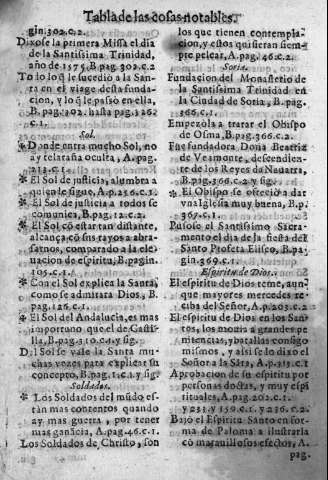 Tabla de las cosas notables.
gin. 302. c. 2.
Dixose la primera Missa el dia
de la Santissima Trinidad,
año de 1575. B. pag. 302. c. 2
Todo lo q̃ le sucedió a la San-
ta en el viage desta funda-
cion, y lo q̃ le passò en ella,
B. pag. 302. hasta pag. 326.
c. 1.
Sol.
✱ Donde entra mucho Sol, no
ay telaraña oculta, A. pag.
c. 1.
✱ El Sol de justicia, alumbra a
quien le sigue, A. p. 256. c. 1.
✱ El Sol de justicia a todos se
comunica, B. pag. 12. c. 2.
✱ El Sol cõ estar tan distante,
alcança cõ sus rayos a abra-
sarnos, comparado a la ele-
uacion de espiritu, B. pagin.
105. c. 1.
✱ Con el Sol explica la Santa,
como se admirara Dios, B.
pag. 126. c. 1.
✱ El Sol del Andaluzia, es mas
importuno que el de Casti-
lla, B. pag. 310. c. 1. y sig.
Del Sol se vale la Santa mu-
chas vezes para explicar su
concepto, B. pag. c. 1. y sig.
Soldados.
✱ Los Soldados del mũdo es-
tàn mas contentos quando
ay mas guerra, por tener
mas ganãcia, A. pag. 46. c. 1.
Los Soldados de Christo, son
los que tienen contempla-
cion, y estos quisieran siem-
pre pelear, A. pag. 46. c. 2.
Soria.
Fundacion del Monasterio de
la Santissima Trinidad en
la Ciudad de Soria, B. pag.
366. c. 1.
Empezòla a tratar el Obispo
de Osma, B. pag. 366. c. 2.
Fue fundadora Doña Beatriz
de Veamonte, descendien-
te de los Reyes de Nauarra,
B. pag. 366. c. 2. y sig.
✱ El Obispo se ofreciò a dar
vna Iglesia muy buena, B. p.
367. c. 1.
Pusose el Santissimo Sacra-
mento el dia de la fiesta del
Santo Profeta Eliseo, B. pa-
gin. 369. c. 1.
Espiritu de Dios.
El espiritu de Dios teme, aun-
que mayores mercedes re-
ciba del Señor, A. p. 203. c. 2
El espiritu de Dios en los San-
tos, los mouia a grandes pe-
nitencias, y batallas consigo
mismos, y assi se lo dixo el
Señor a la Sãta, A. p. 215. c. 1
Aprobacion de su espiritu por
personas doctas, y muy espi-
rituales, A. pag. 202. c. 1.
y 231. y 150. c. 1. y 236. c. 2.
Baxò el Espiritu Santo en for-
ma de Paloma a ilustrarla
cõ marauillosos efectos, A.
pag.